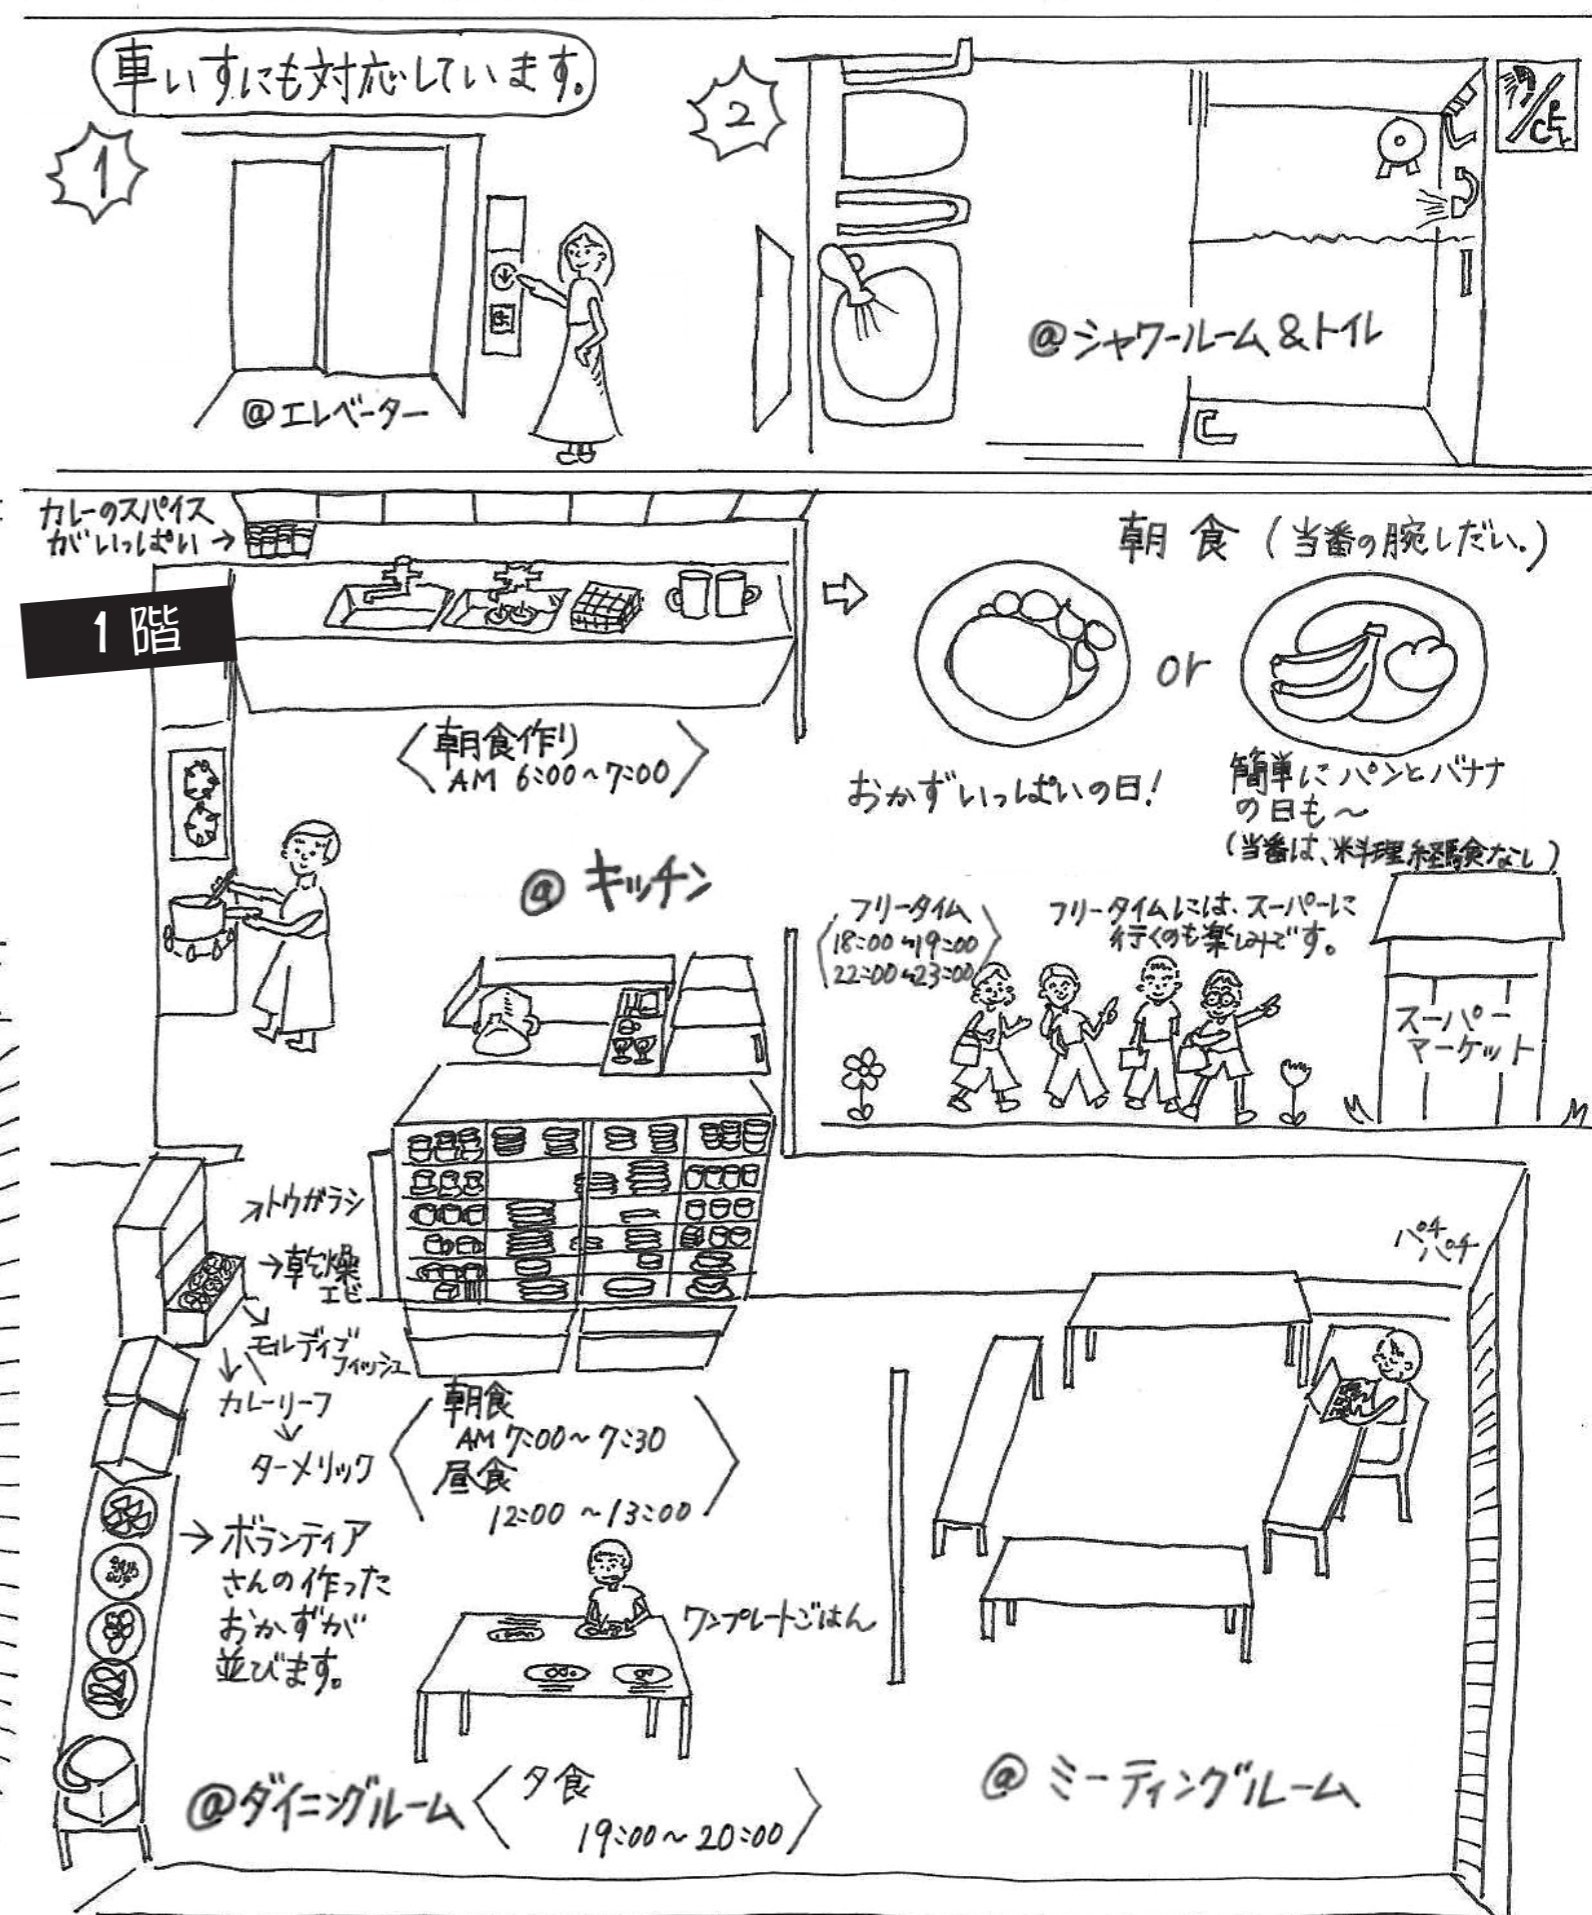 車いすにも対応しています。
1
@エレベーター
2
@シャワールーム&トイレ
カレーのスパイス
がいっぱい→
1階
〈朝食作り
AM 6:00~7:00〉
@キッチン
朝食(当番の腕しだい。)
or
おかずいっぱいの日!
簡単にパンとバナナ
の日も~
(当番は、料理経験なし)
フリータイム
18:00~19:00
22:00~23:00
フリータイムには、スーパーに
行くのも楽しみです。
スーパー
マーケット
→トウガラシ
→乾燥
エビ
モルディブ
フィッシュ
カレーリーフ
ターメリック
→ボランティア
さんの作った
おかずが
並びます。
朝食
AM 7:00~7:30
昼食
12:00~13:00
ワンプレートごはん
@ダイニングルーム
夕食
19:00~20:00
パチ
パチ
@ミーティングルーム